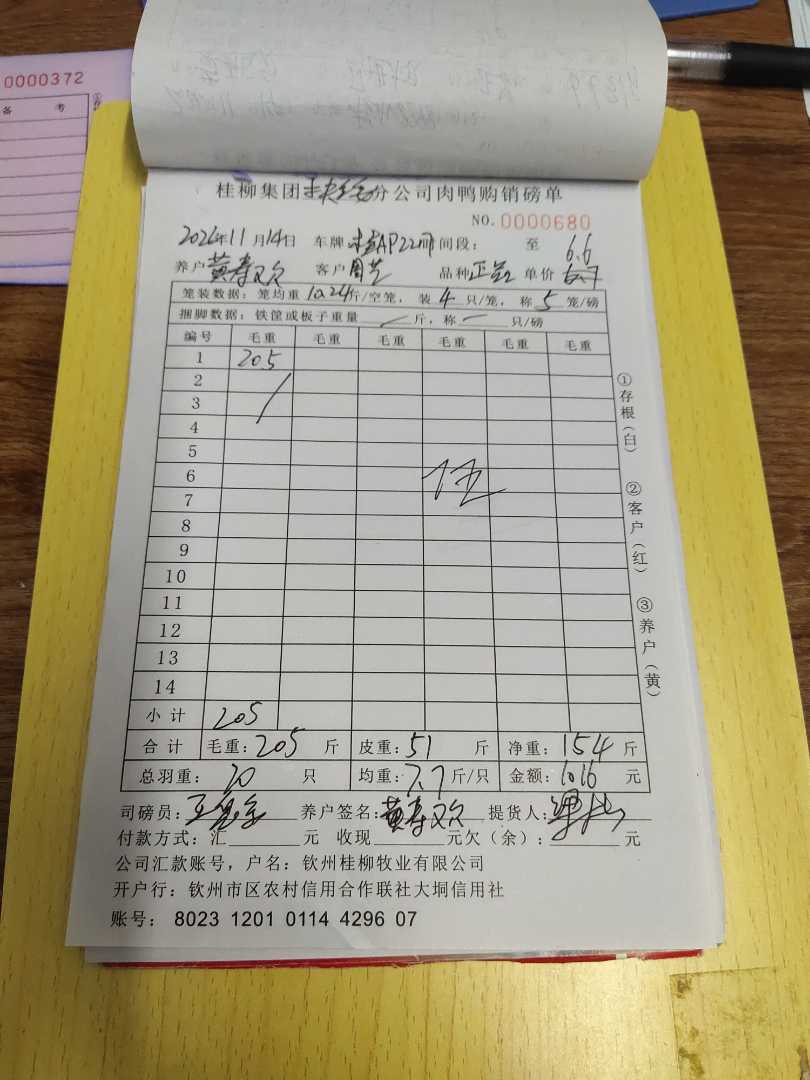 0000372
备 考
桂柳集团分公司肉鸭购销磅单
NO. 0000680
2026年11月14日 车牌 AP22 间段： 至 6.6
养户 黄寿欢 客户 周 品种 正 单价
笼装数据：笼均重10.24斤/空笼，装4只/笼，称5笼/磅
捆脚数据：铁筐或板子重量 / 斤，称 — 只/磅
编号 毛重 毛重 毛重 毛重 毛重 毛重
1 205
2
3
4
5
6
7
8
9
10
11
12
13
14
小计 205
合计 毛重：205 斤 皮重：51 斤 净重：154 斤
总羽重：20 只 均重：7.7斤/只 金额：1016 元
司磅员： 养户签名：黄寿欢 提货人：
付款方式：汇 元 收现 元欠（余）： 元
公司汇款账号，户名：钦州桂柳牧业有限公司
开户行：钦州市区农村信用合作联社大垌信用社
账号：8023 1201 0114 4296 07
①存根（白）
②客户（红）
③养户（黄）